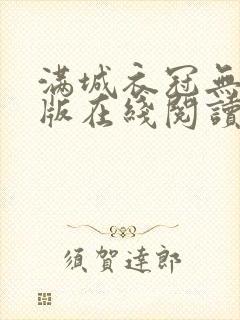 滿城衣冠無
版在綫閱讀
須賀達郎